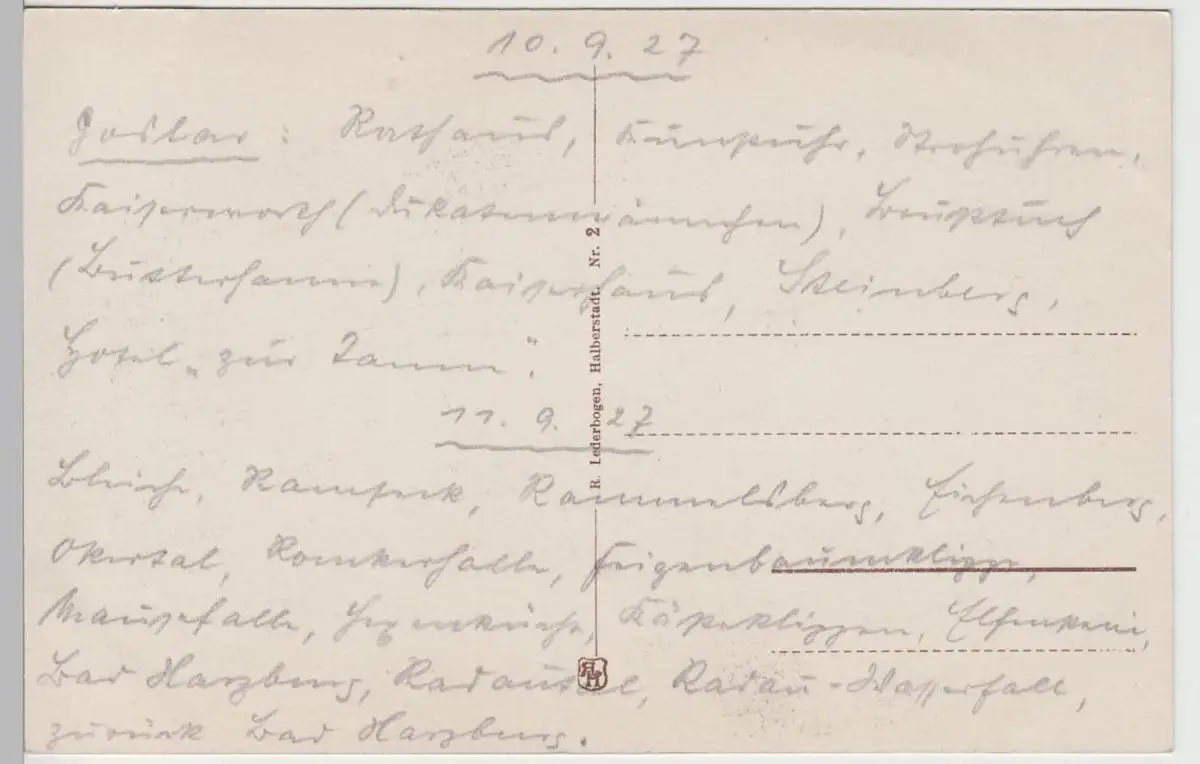 10. 9. 27
Goslar: Rathaus, Kunstuhr,
Kaiserworth (Dukatenmännchen), Brusttuch
(Butterhanne), Kaiserhaus, Steinberg,
Hotel „zur Tanne".
11. 9. 27
Bleiche, Ramseck, Rammelsberg, Eichenberg,
Okertal, Romkerhalle, Feigenbaumklippe,
Mausefalle, Hexenküche, Kästeklippen, Elfenstein,
Bad Harzburg, Radautal, Radau-Wasserfall,
zurück Bad Harzburg.
R. Lederbogen, Halberstadt. Nr. 2